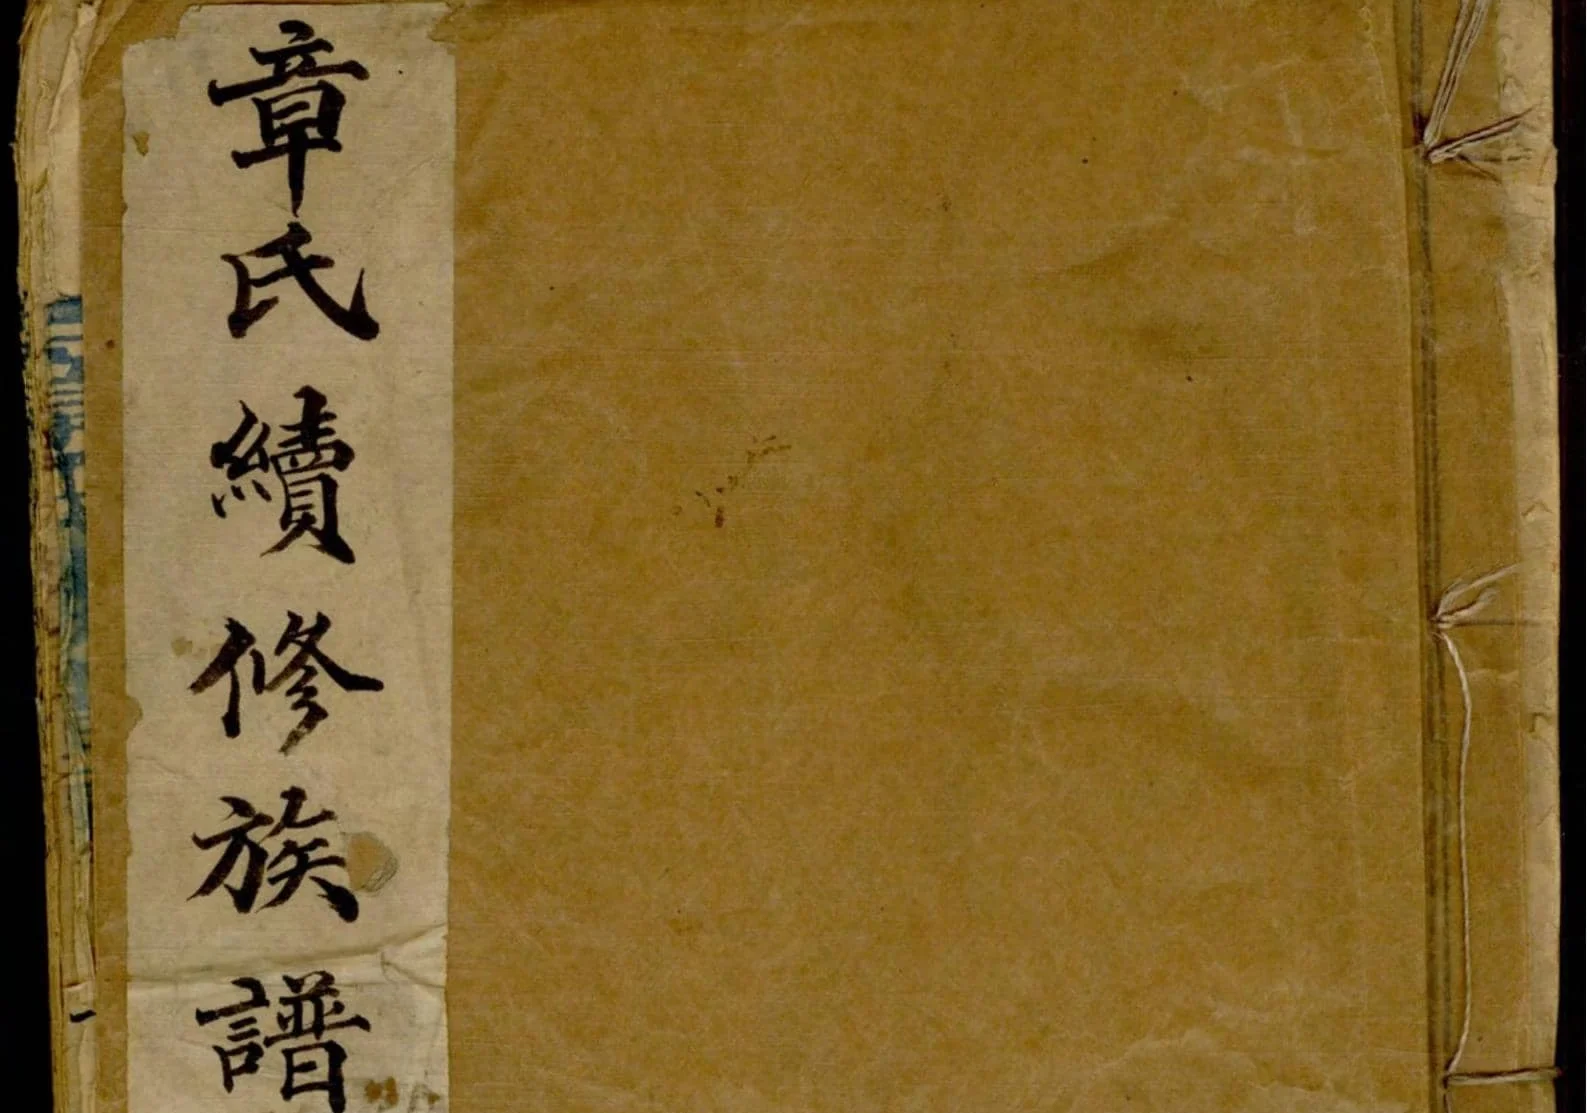 章氏續修族譜